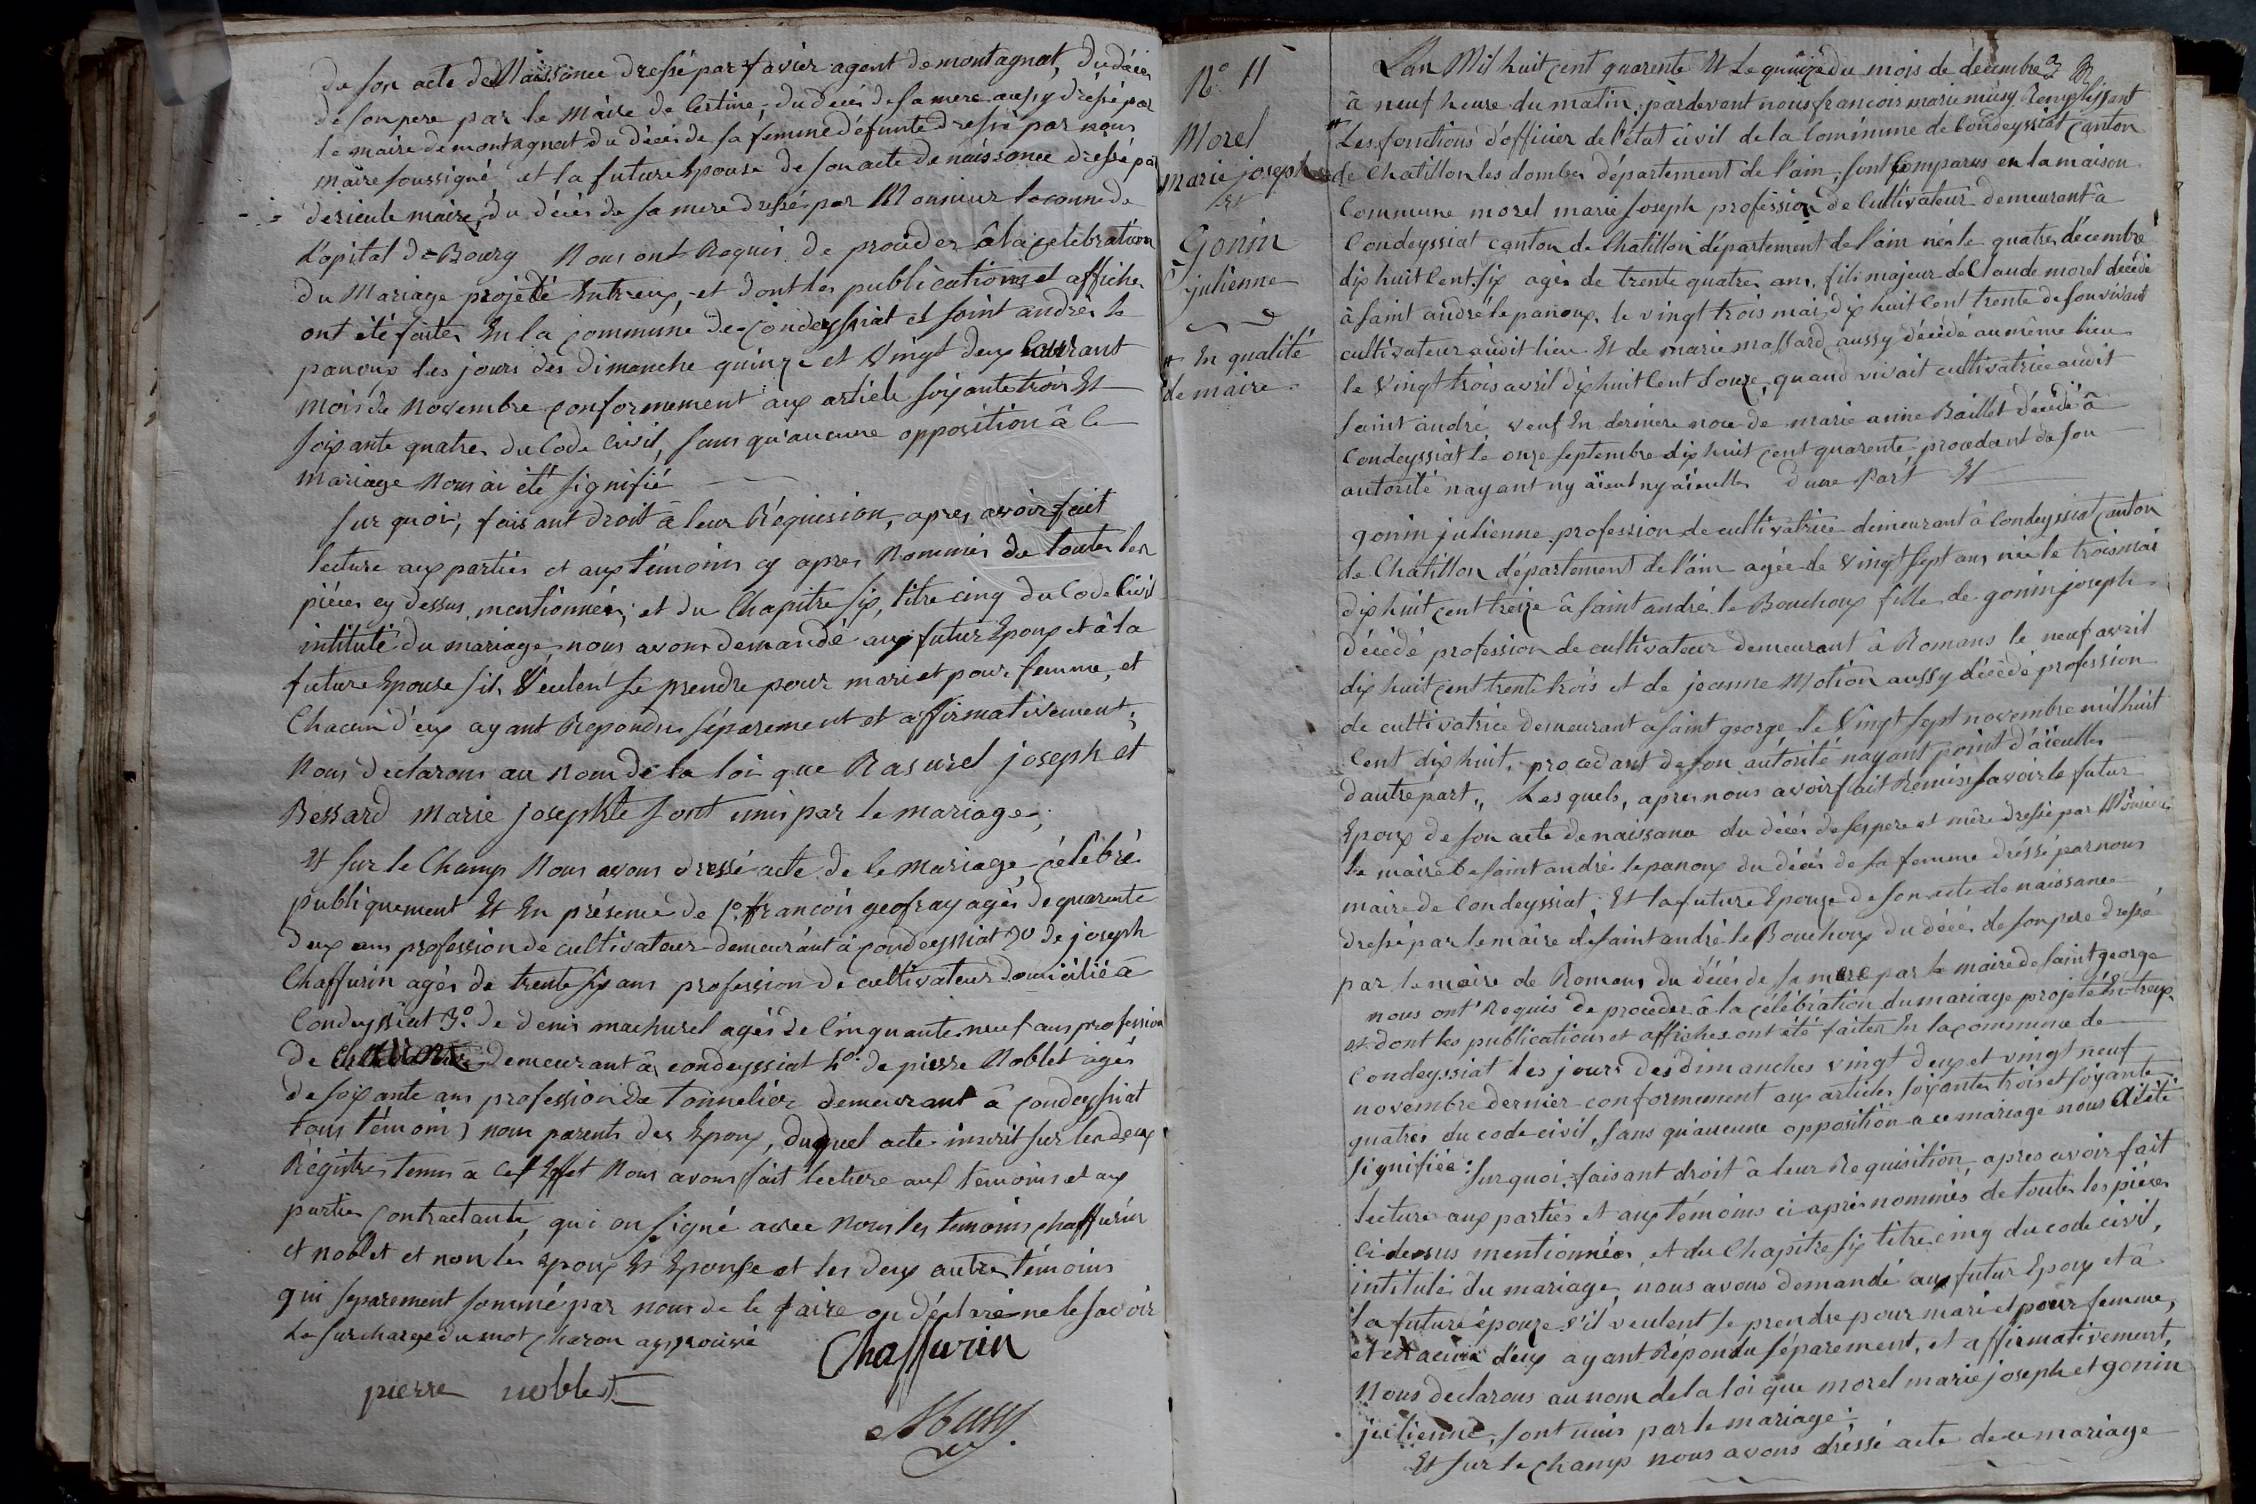 de son acte de Naissance dressé par favier agent de montagnat, du décès
de son pere par le Maire de Certine, du deces de sa mere aussy dressé par
le maire de montagnat du décès de sa femme défunte dressé par nous
maire soussigné et la future Epouse de son acte de naissance dressé par
maire, du décès de sa mere dressé par Monsieur
L'opital de Bourg Nous ont Requis de procéder â la celebration
du Mariage projeté Entreux, et dont les publications et affiches
ont été faites En la commune de Condeyssiat et saint andré le
panoux les jours des dimanche quinze et Vingt deux Courrant
mois de Novembre conformement aux article soixante trois Et
soixante quatre du Code Civil, sans qu'aucune opposition â ce
mariage Nous ai été signifié
sur quoi, faisant droit â leur Réquision, apres avoir fait
lecture aux parties et aux témoins cy apres Nommés de toutes les
pièces cy dessus mentionnées, et du Chapitre six, titre cinq du Code Civil
intitulé du mariage, nous avons demandé aux futur Epoux et â la
future Epouse s'ils Veulent se prendre pour mari et pour femme, et
Chacun d'eux ayant Repondu séparement et affirmativement,
Nous déclarons au Nom de la loi que Rasurel joseph et
Bessard Marie josephte sont unis par le mariage;
Et sur le Champ Nous avons dressé acte de ce Mariage, célébré
publiquement Et En présence de 1º françois geofray agés de quarente
deux ans profession de cultivateur demeurant à condeyssiat 2º de joseph
Chaffurin agés de trente six ans profession de cultivateur domicilié â
Condeyssiat 3º de denis machurel agés de Cinquante neuf ans profession
de demeurant â condeyssiat 4º de pierre Noblet agés
de soixante ans profession de tonnelier demeurant â condeyssiat
tous témoins nom parents des Epoux, duquel acte inscrit sur les deux
Régistres tenus â cet Effet Nous avons fait lecture aux témoins et aux
parties contractante, qui on signé avec Nous les temoins chaffurin
et noblet et non les Epoux Et Epouse et les deux autres témoins
qui separement sommé par nous de le faire on déclaré ne le savoir
La surcharge du mot charon approuvé
Chaffurin
pierre noblet
Musy
Nº 11
Morel
marie joseph
Et
Gonin
julienne
# En qualité
de maire
L'an Mil huit cent quarente Et Le quinze du mois de décembre
â neuf heure du matin, pardevant nous francois marie musy Remplissant
# Les fonctions d'officier de l'état civil de la Commune de Condeyssiat Canton
de Chatillon les dombes département de l'ain, sont Comparus en la maison
Commune morel marie Joseph profession de Cultivateur demeurant â
Condeyssiat canton de Chatillon département de l'ain nés le quatre décembre
dix huit Cent six agés de trente quatre ans, fils majeur de Claude morel décédé
â saint andré le panoux le vingt trois mai dix huit Cent trente de son vivant
cultivateur audit lieu Et de marie massard aussy décédé au même lieu
le Vingt trois avril dix huit Cent douze, quand vivait cultivatrice audit
saint andré, veuf En derniere noce de marie anne Baillet décédé â
Condeyssiat le onze septembre dix huit cent quarente, procedant de son
autorité nayant ny aïeul ny aïeulle d'une Part Et
gonin julienne profession de cultivatrice demeurant â Condeyssiat Canton
de Chatillon département de l'ain agée de Vingt sept ans née le trois mai
dix huit cent treize â saint andré le Bouchoux fille de gonin joseph
décédé profession de cultivateur demeurant â Romans le neuf avril
dix huit cent trente trois et de jeanne Motion aussy décédé profession
de cultivatrice demeurant a saint george le Vingt sept novembre mil huit
Cent dix huit, procedant de son autorité nayant point d'aïeulles
d'autre part, Les quels, apres nous avoir fait Remise savoir le futur
Epoux de son acte de naissance du décès de ses pere et mère dressé par Monsieur
le maire de saint andré le panoux du décès de sa femme dréssé par nous
maire de Condeyssiat, Et la future Epouze de son acte de naissance
dressé par le maire de saint andré le Bouchoux du décès de son pere dressé
par le maire de Romans du décès de sa mere par le maire de saint george
nous ont Requis de proceder â la célébration du mariage projeté Entreux
et dont les publications et affiches ont été faites En la commune de
Condeyssiat les jours des dimanches vingt deux et vingt neuf
novembre dernier conformement aux articles soixante trois et soixante
quatre du code civil, sans qu'aucune opposition a ce mariage nous ait été
signifiée: sur quoi, faisant droit â leur Requisition, apres avoir fait
lecture aux parties et aux témoins ci après nommés de toutes les pièces
ci dessus mentionnées, et du Chapitre six titre cinq du code civil,
intitulé du mariage, nous avons demandé aux futur Epoux et â
la future épouze s'il veulent se prendre pour mari et pour femme,
et chacun d'eux ayant Répondu séparement, et affirmativement,
Nous declarons au nom de la loi que morel marie joseph et gonin
julienne, sont unis par le mariage;
Et sur le champ nous avons dréssé acte de ce mariage